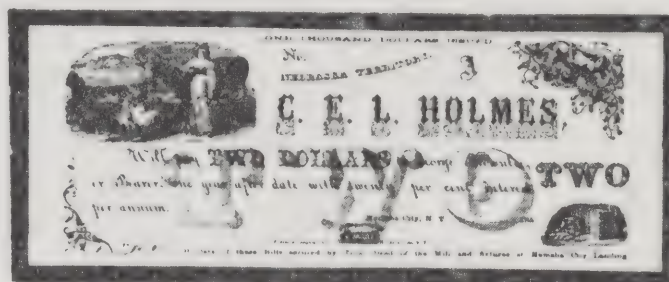 ONE THOUSAND DOLLARS ISSUED
No.
NEBRASKA TERRITORY
C. E. L. HOLMES,
Will pay TWO DOLLARS George
or Bearer, one year after date with twenty per cent interest
TWO
per annum.
Nemaha City, N. T.
of these bills secured by of the Mill and fixtures at Nemaha City Landing